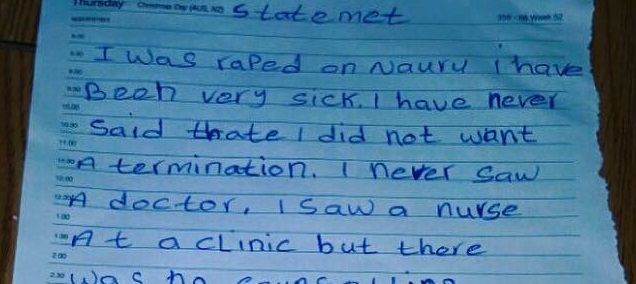 Thursday Christmas Day (AUS, NZ) Statemet 359 - 06 Week 52
8.00
8.30 I was raped on Nauru I have
9.00
9.30 Been very sick. I have never
10.00
10.30 Said thate I did not want
11.00
11.30 A termination. I never saw
12.00
12.30 A doctor, I saw a nurse
1.00
1.30 At a clinic but there
2.00
2.30 was no counselling